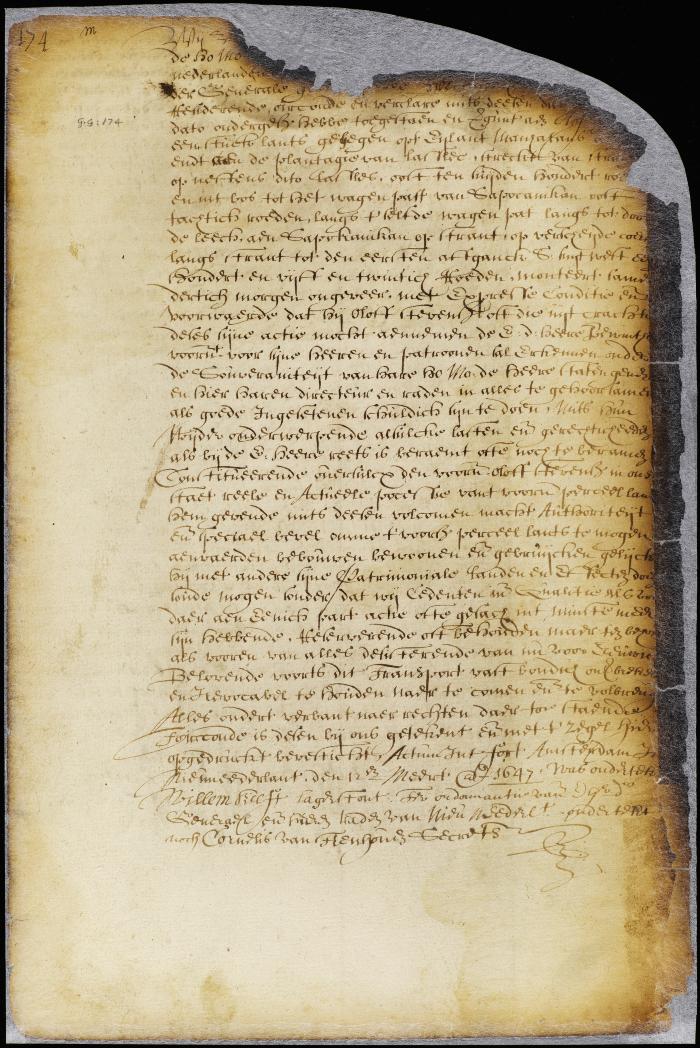 174
m
Wij
de Ho Mo
nederlanden
der Generale
Residerende, oirconde en verclare mits deesen da
dato ondergesz hebbe toegestaen en Egunt aen Olof
een stuck lants gelegen opt Eijlant Manhatans
G.G: 174
endt aen de plantagie van Jan Kes, streckt van stran
op nessens dito Jan Kes, oost ten suijden hondert roe
en int bos tot het wagen patt van Sapocanikan oost
tachtich roeden, langs t'selfde wagen pat langs tot door
de leech aen Sapokanikan op strant, op verscheijde coer
langs strant tot den eersten affganck S. suijt west ee
hondert en vijff en twintich Roeden, monteert tame
dertich morgen ongeveer, met Expresse Conditie en
voorwaerde dat hij Oloff Stevensz ost die uijt cracht
deses sijne actie mocht aennemen de E. d. heere Bewinth
voornt. voor sijne heeren en patroonen sal Erkennen onder
de Souveraniteijt van hare Ho: Mo: de heere staten gener
en hier haren directeur en raden in alles te gehoorsamen
als goede Ingesetenen schuldich sijn te doen, Mits hun
Heijder onderwerpende alsulcke lasten en gerechticheede
als bij de E. heere reets is beraemt ofte noch te beramen
Constitueerende oversulcx den voorn. Oloff Stevensz in ons
staet reele en Actueele possessie vant voorn perceel lan
hem gevende mits deesen volcomen macht Authoriteijt
en speciael bevel omme t'voorsz perceel lants te mogen
aenvaerden bebouwen bewoonen en gebruijcken gelijck
hij met andere sijne Patrimoniale landen en Effecten do
soude mogen sonder dat wij Cedenten in Qualite als vo
daer aen Eenich part actie ofte gesach int minste meer
sijn hebbende, Reserverende oft behouden maer ten behoe
als vooren van alles desisterende van nu voor Eeuwi
Belovende voorts dit Transport vast bondich onverbreek
en Irrevocabel te houden naer te comen en te volbren
Alles ondert verbant naer rechten daer toe staende
Forconde is desen bij ons geteekent en met t' Zegel hier
opgedruckt bevesticht, Actum Int fort Amsterdam In
Nieuneederlant den 12en Meert Ao 1647. Was ondertek
Willem Kieft lager stont. Ter ordonnantie van
Generael en heeren Raden van Nieu Nederlt. ondertekt
noch Cornelis van Tienhoven Secrets